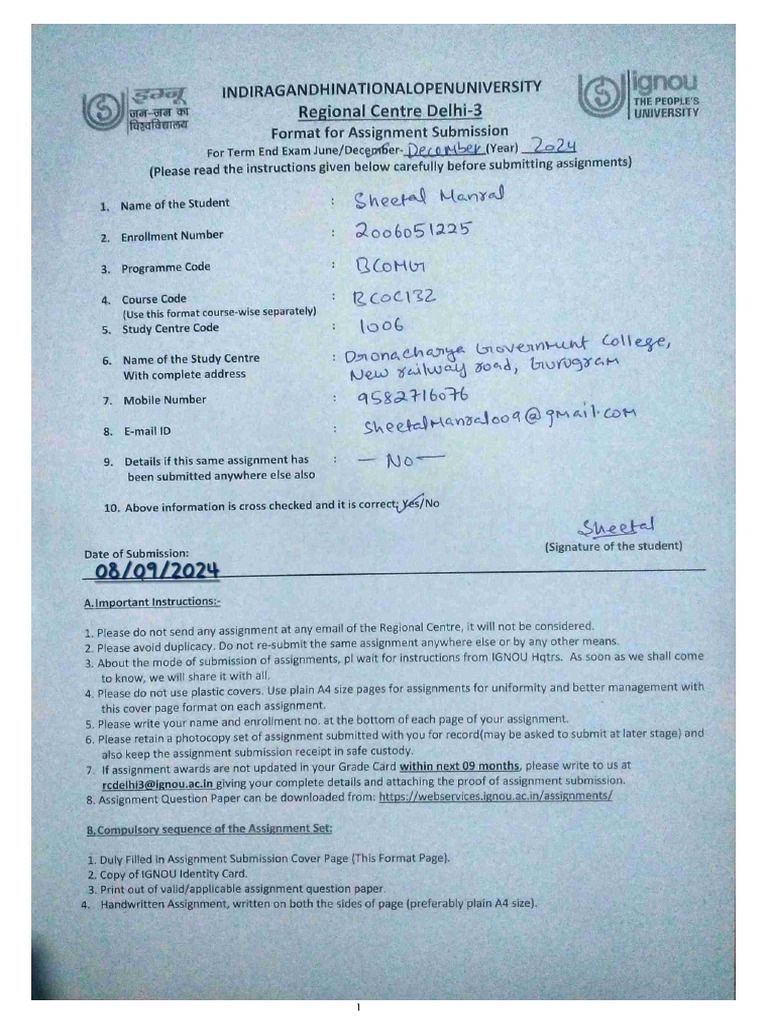 इग्नू
जन-जन का
विश्वविद्यालय
INDIRAGANDHINATIONALOPENUNIVERSITY
Regional Centre Delhi-3
Format for Assignment Submission
ignou
THE PEOPLE'S
UNIVERSITY
For Term End Exam June/December- December (Year) 2024
(Please read the instructions given below carefully before submitting assignments)
1. Name of the Student : Sheetal Manral
2. Enrollment Number : 2006051225
3. Programme Code : BCOMG
4. Course Code : BCOC132
(Use this format course-wise separately)
5. Study Centre Code : 1006
6. Name of the Study Centre : Dronacharya Government College,
With complete address New railway road, Gurugram
7. Mobile Number : 9582716076
8. E-mail ID : SheetalManral009@gmail.com
9. Details if this same assignment has : — No —
been submitted anywhere else also
10. Above information is cross checked and it is correct: Yes/No
Sheetal
(Signature of the student)
Date of Submission:
08/09/2024
A. Important Instructions:-
1. Please do not send any assignment at any email of the Regional Centre, it will not be considered.
2. Please avoid duplicacy. Do not re-submit the same assignment anywhere else or by any other means.
3. About the mode of submission of assignments, pl wait for instructions from IGNOU Hqtrs. As soon as we shall come
to know, we will share it with all.
4. Please do not use plastic covers. Use plain A4 size pages for assignments for uniformity and better management with
this cover page format on each assignment.
5. Please write your name and enrollment no. at the bottom of each page of your assignment.
6. Please retain a photocopy set of assignment submitted with you for record(may be asked to submit at later stage) and
also keep the assignment submission receipt in safe custody.
7. If assignment awards are not updated in your Grade Card within next 09 months, please write to us at
rcdelhi3@ignou.ac.in giving your complete details and attaching the proof of assignment submission.
8. Assignment Question Paper can be downloaded from: https://webservices.ignou.ac.in/assignments/
B. Compulsory sequence of the Assignment Set:
1. Duly Filled in Assignment Submission Cover Page (This Format Page).
2. Copy of IGNOU Identity Card.
3. Print out of valid/applicable assignment question paper.
4. Handwritten Assignment, written on both the sides of page (preferably plain A4 size).
1